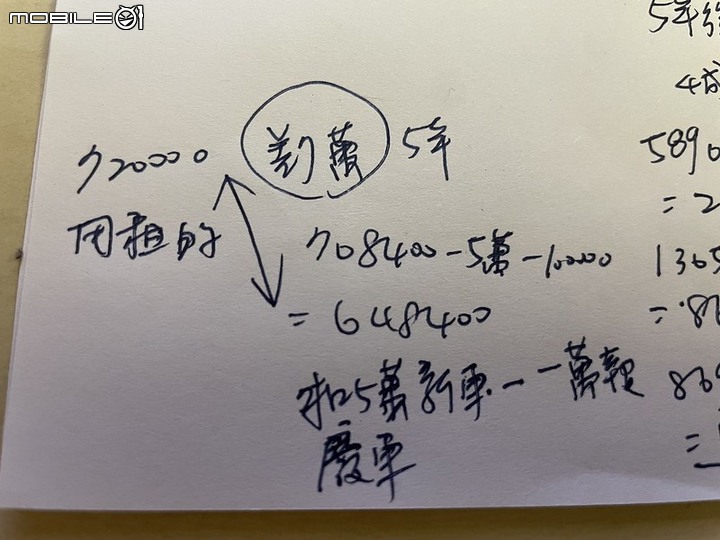 mobile01
720000 差7萬 5年
用租的
708400-5萬-10000
=648400
扣5萬新車-一萬報
廢車
5年
4成
5890
=2
1365
=.86
869
=